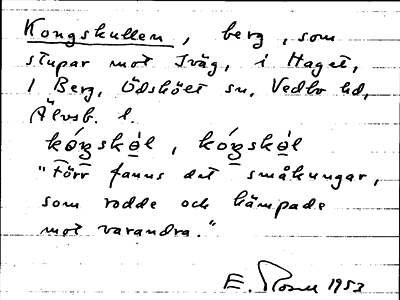 Kongskullen, berg, som
stupar mot Iväg, i Haget,
1 Berg, Ödskölt sn, Vedbo hd,
Älvsb. l.
kóŋskò̤l, kóŋskò̤l
"Förr fanns det småkungar,
som rodde och kämpade
mot varandra."
E. 1953